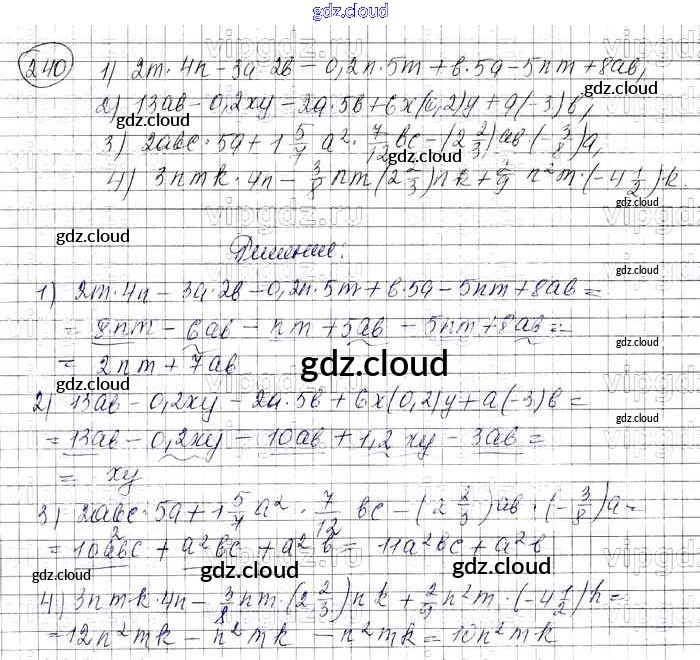 gdz.cloud
240 1) 2m·4n - 3a·2b - 0,2n·5m + b·5a - 5nm + 8ab,
2) 13ab - 0,2xy - 2a·5b + 6x(0,2)y + a(-3)b,
3) 2abc·5a + 1 5/7 a²· 7/12 bc - (2 2/3)ab·(-3/8)a,
4) 3nmk·4n - 3/8 nm(2 2/3)nk + 2/9 n²m·(-4 1/2)·k.
Решение:
1) 2m·4n - 3a·2b - 0,2n·5m + b·5a - 5nm + 8ab =
= 8nm - 6ab - nm + 5ab - 5nm + 8ab =
= 2nm + 7ab
2) 13ab - 0,2xy - 2a·5b + 6x(0,2)y + a(-3)b =
= 13ab - 0,2xy - 10ab + 1,2xy - 3ab =
= xy
3) 2abc·5a + 1 5/7 a² · 7/12 bc - (2 2/3)ab·(-3/8)a =
= 10a²bc + a²bc + a²b = 11a²bc + a²b
4) 3nmk·4n - 3/8 nm·(2 2/3)nk + 2/9 n²m·(-4 1/2)k =
= 12n²mk - n²mk - n²mk = 10n²mk